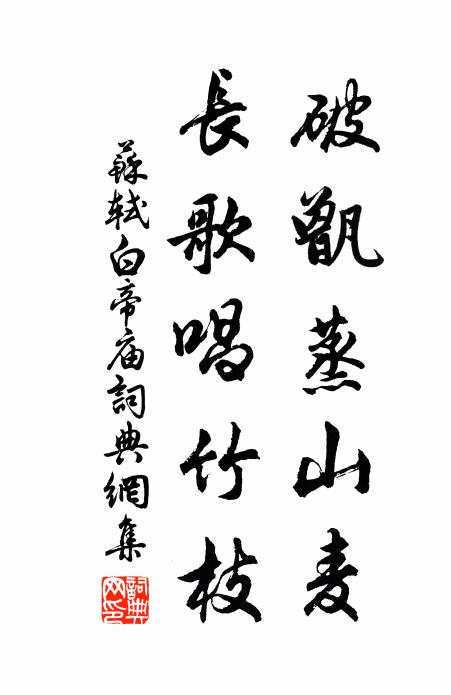 破甑蒸山麦
長歌唱竹枝
蘇軾白帝庙詞典網集
詞典网印